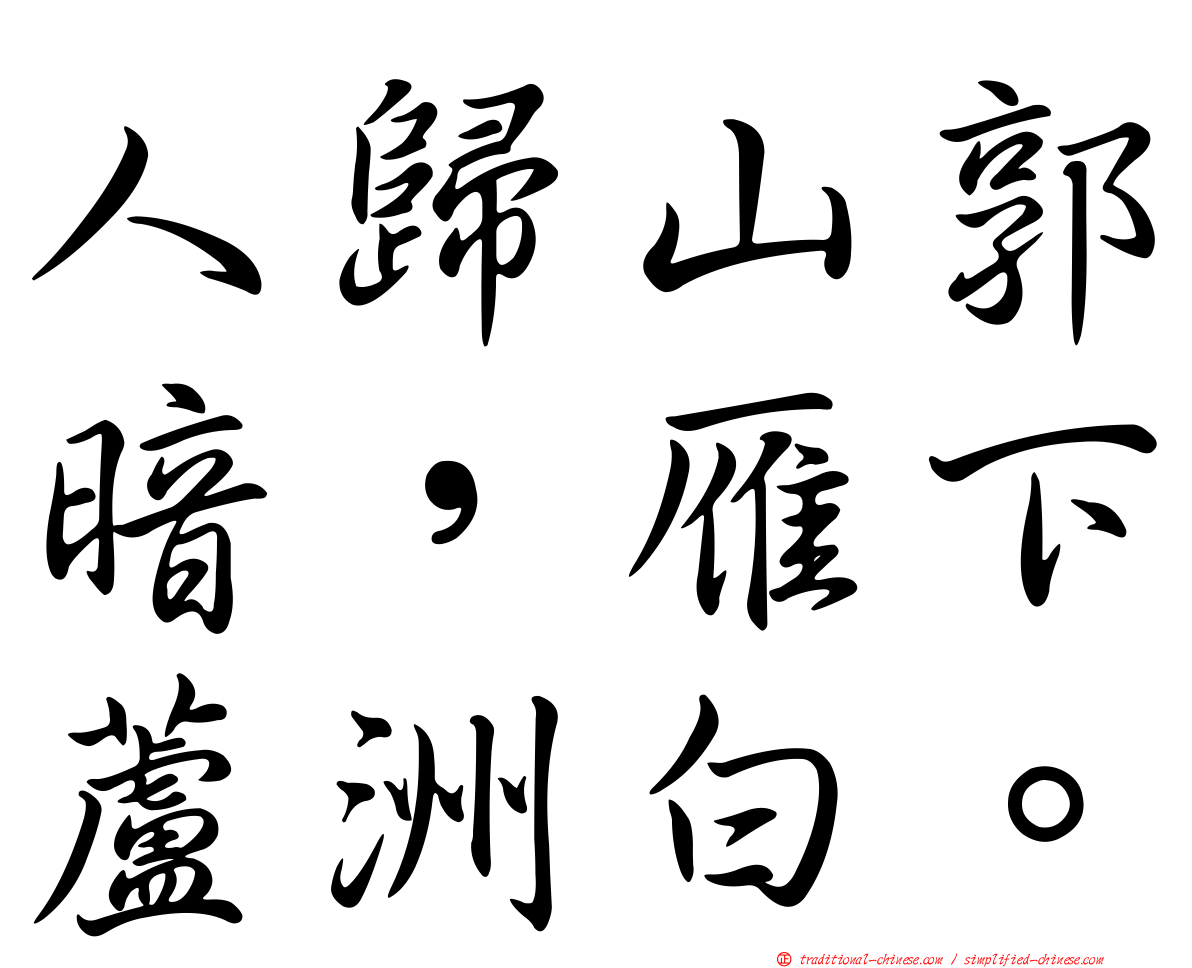 人歸山郭
暗，雁下
蘆洲白。
㊣ traditional-chinese.com / simplified-chinese.com